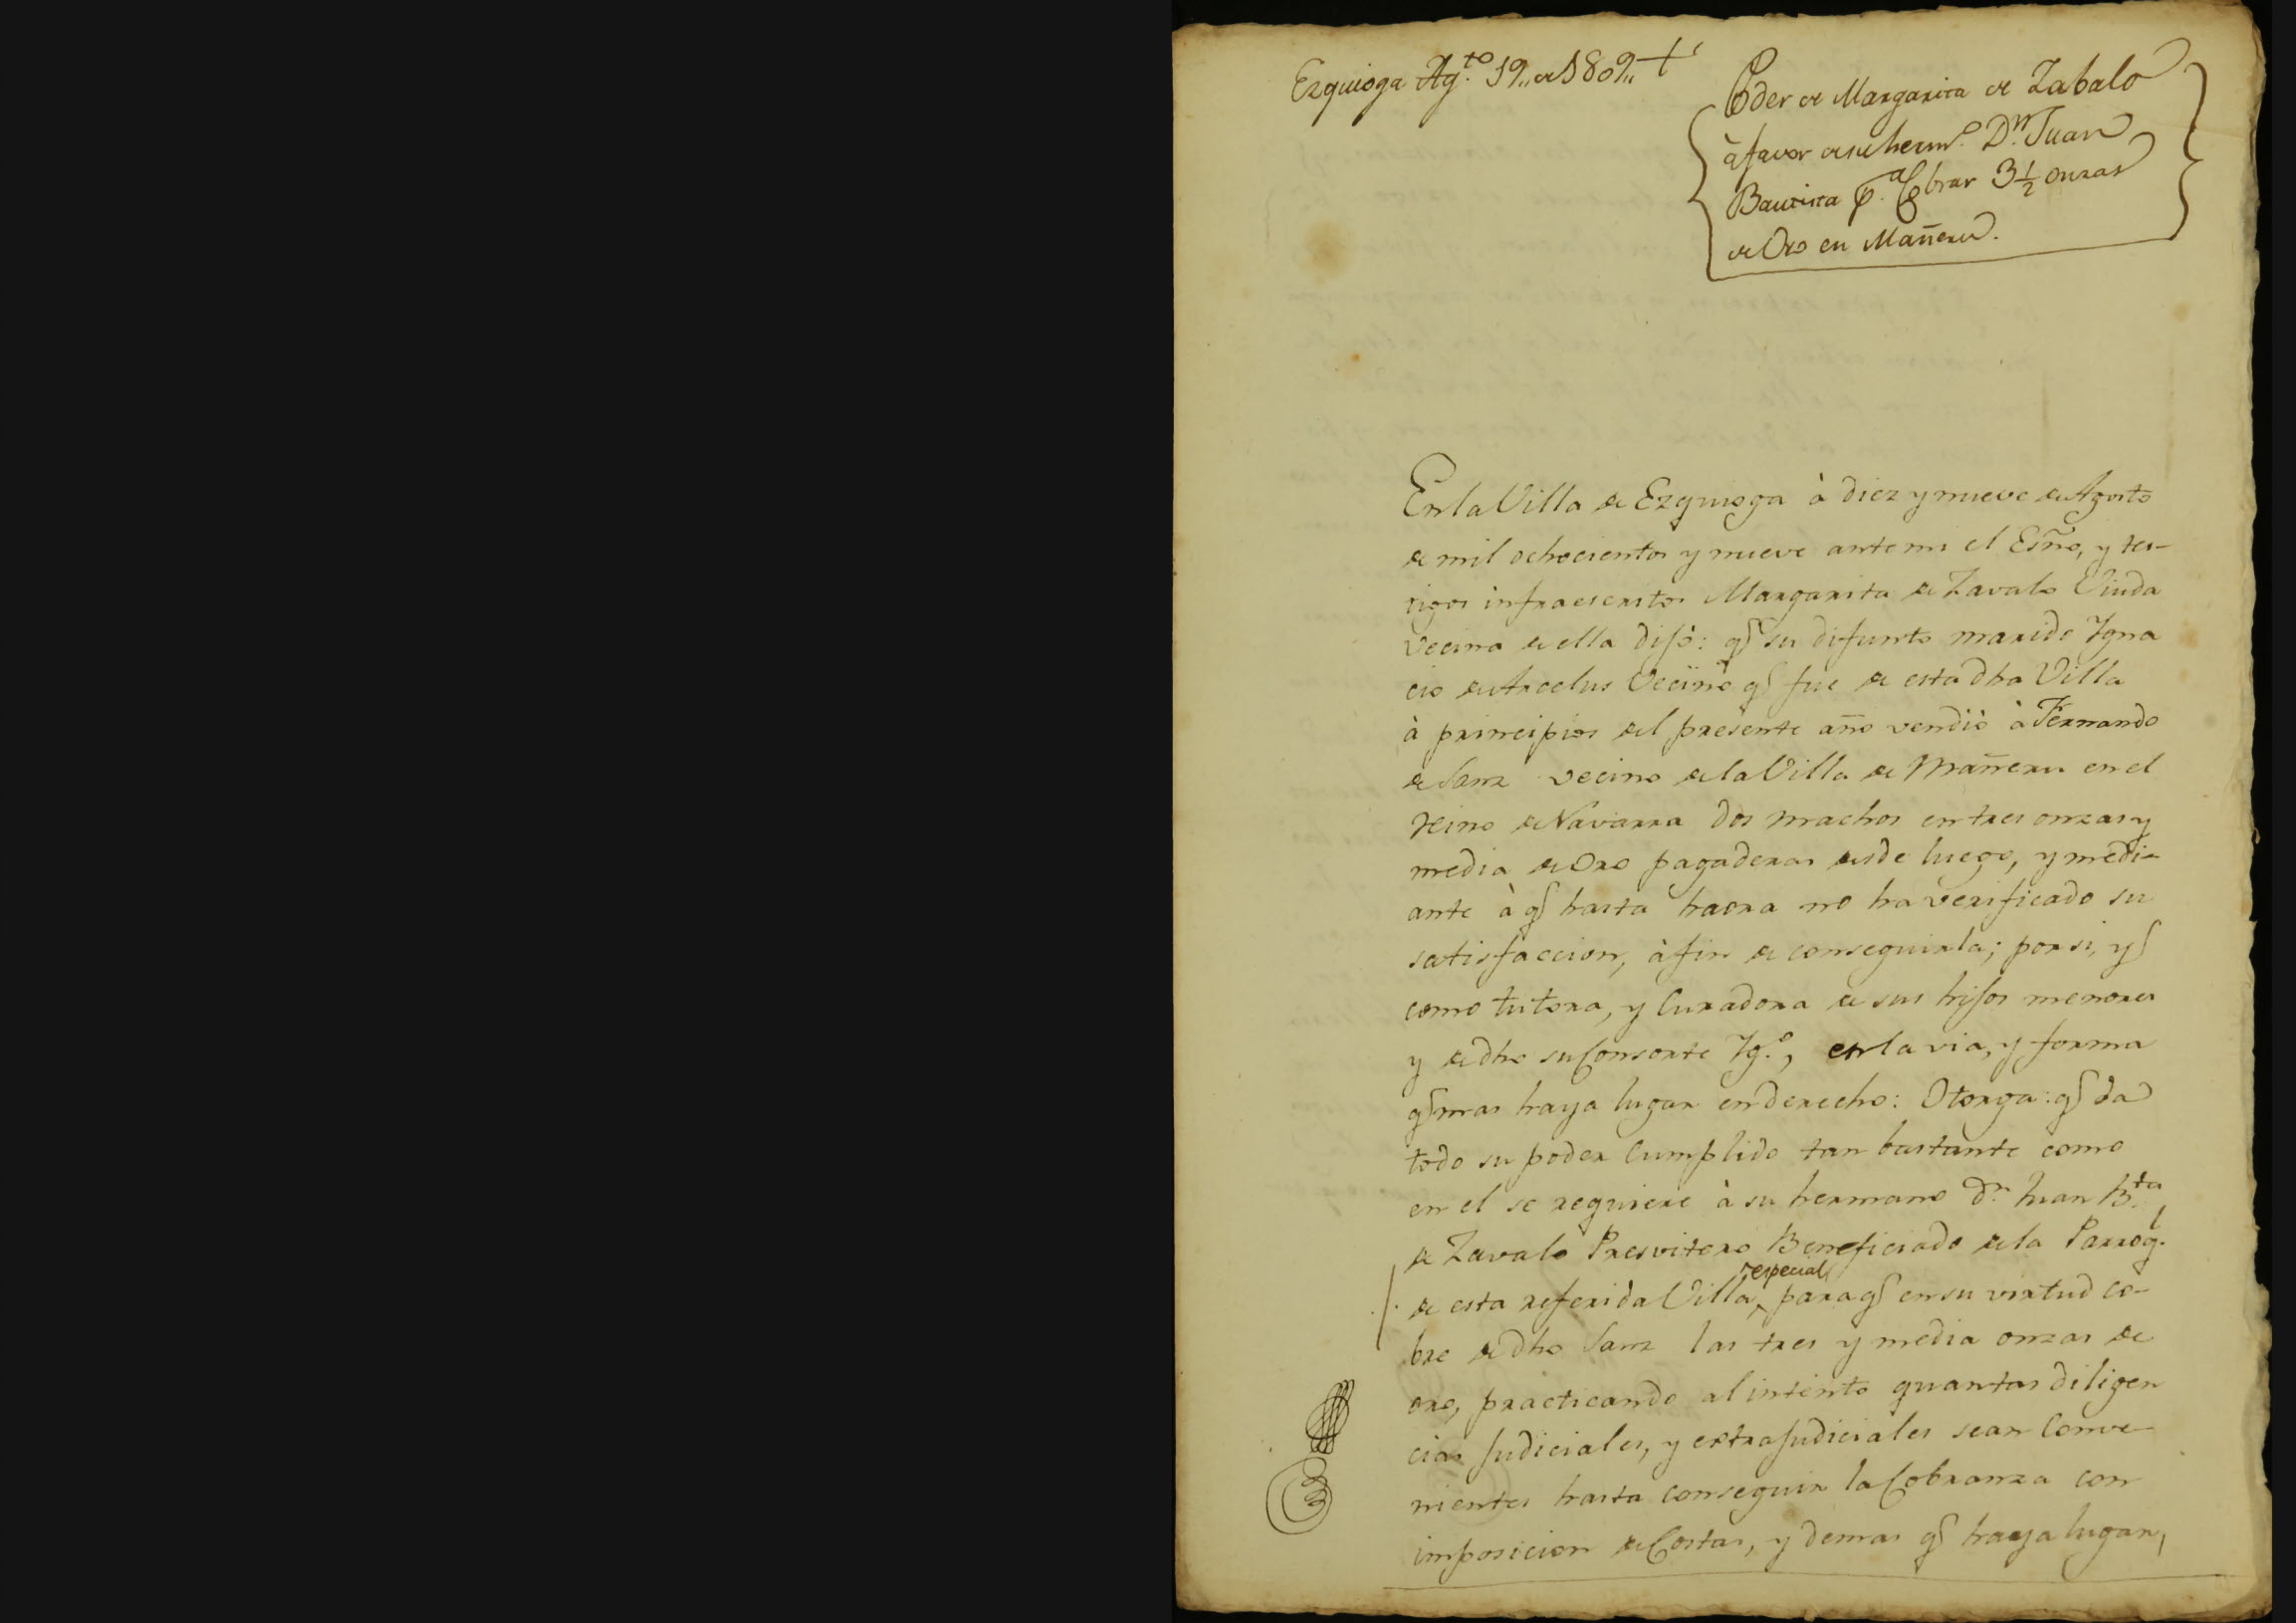 Ezquioga Ag.to 19,, de 1809,, +
Poder de Margarita de Zabalo
à favor de su herm.o D.n Juan
Bautista p.a Cobrar 3 1/2 onzas
de Oro en Mañeru.
En la Villa de Ezquioga à diez y nueve de Agosto
de mil ochocientos y nueve ante mi el Esño, y tes-
tigos infraescritos Margarita de Zavalo Viuda
vecina de ella dijò: q̃ su difunto marido Ygna
cio de Arcelus Vecino q̃ fue de esta dha Villa
à principios del presente año vendiò à Fernando
de Sanz vecino de la Villa de Mañeru en el
Reino de Navarra dos machos en tres onzas y
media de Oro pagaderas desde luego, y medi-
ante à q̃ hasta haora no ha verificado su
satisfaccion, à fin de conseguirla; por si, y
como tutora, y Curadora de sus hijos menores
y de dho su Consorte Yg.o, en la via, y forma
q̃ mas haya lugar en derecho: Otorga: q̃ da
todo su poder Cumplido tan bastante como
en el se requiere à su hermano d.n Juan B.ta
de Zavalo Presvitero Beneficiado de la Parroq.l
especial
de esta referida Villa, para q̃ en su virtud co-
bre de dho Sanz las tres y media onzas de
oro, practicando al intento quantas diligen
cias Judiciales, y extrajudiciales sean Conve-
nientes hasta conseguir la Cobranza con
imposicion de Costas, y demas q̃ haya lugar,